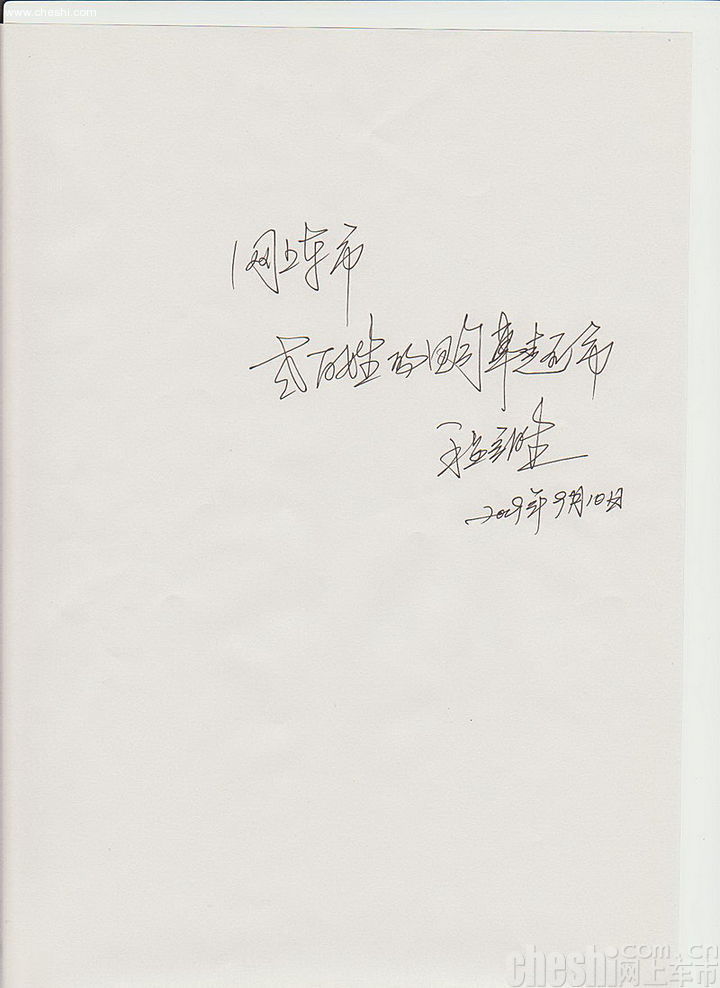 www.cheshi.com
网上车市
百姓的购车超市
2009年9月10日
cheshi.com.cn
网上车市